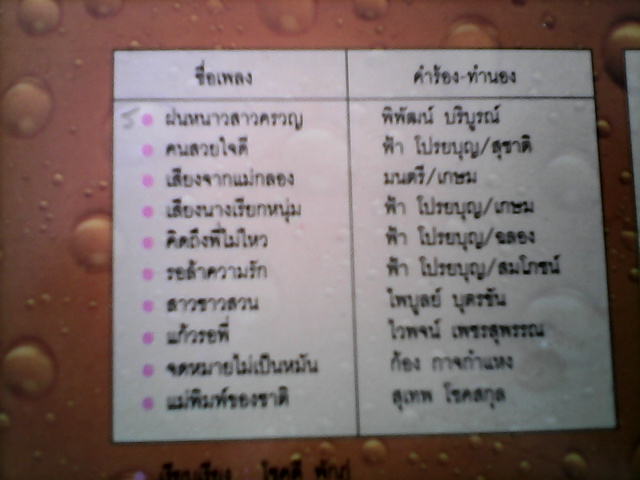 ชื่อเพลง คำร้อง-ทำนอง
ฝนหนาวสาวครวญ พิพัฒน์ บริบูรณ์
คนสวยใจดี ฟ้า โปรยบุญ/สุชาติ
เสียงจากแม่กลอง มนตรี/เกษม
เสียงนางเรียกหนุ่ม ฟ้า โปรยบุญ/เกษม
คิดถึงพี่ไม่ไหว ฟ้า โปรยบุญ/ฉลอง
รอล้าความรัก ฟ้า โปรยบุญ/สมโภชน์
สาวชาวสวน ไพบูลย์ บุตรขัน
แก้วรอพี่ ไวพจน์ เพชรสุพรรณ
จดหมายไม่เป็นหมัน ก้อง กาจกำแหง
แม่พิมพ์ของชาติ สุเทพ โชคสกุล
เรียบเรียง